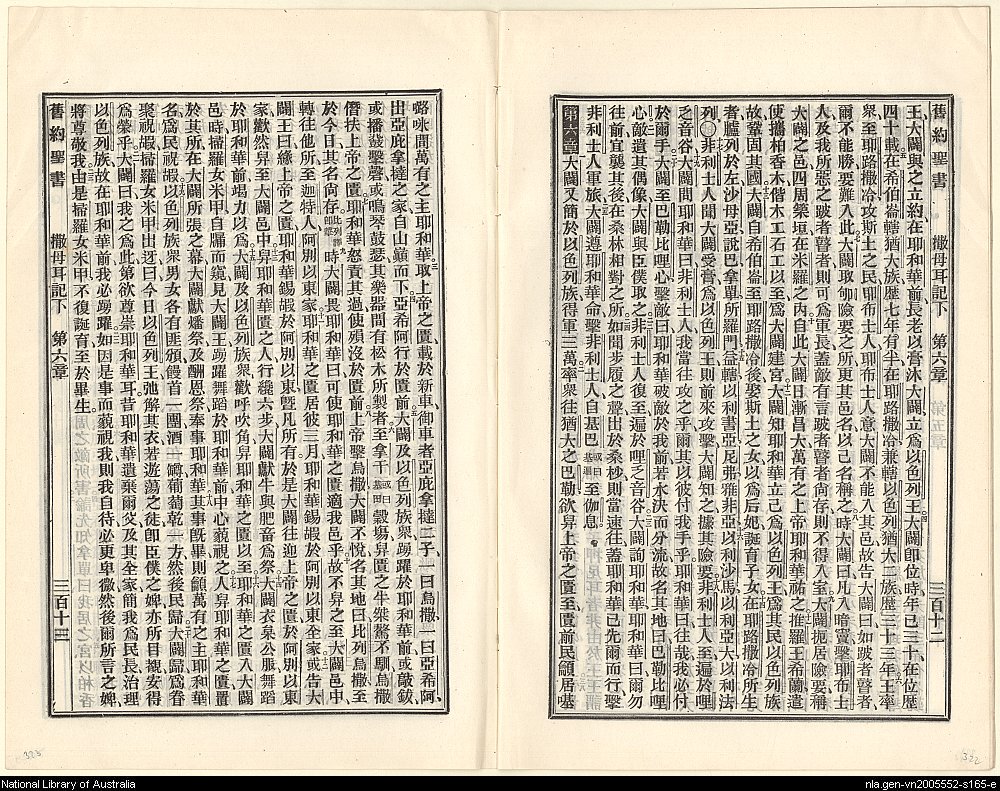 舊約聖書 撒母耳記下 第六章 三百十二
王大闢與之立約在耶和華前長老以膏沐大闢立爲以色列王大闢卽位時年已三十在位歷
四十載在希伯崙轄猶大族歷七年有半在耶路撒冷兼轄以色列猶大二族歷三十三年王率
衆至耶路撒冷攻斯土之民耶布士人耶布士人意大闢不能入其邑故告大闢曰如跛者瞽者
爾不能勝要難入此大闢取郇險要之所更其邑名以己名稱之時大闢曰凡入暗竇擊耶布士
人及我所惡之跛者瞽者則可爲軍長蓋敵有言跛者瞽者尚存則不得入室大闢扼居險要稱
大闢之邑四周築垣在米羅之內自此大闢日漸昌大萬有之上帝耶和華祐之推羅王希蘭遣
使攜柏香木偕木工石工以至爲大闢建宮大闢知耶和華立己爲以色列王爲其民以色列族
故鞏固其國大闢自希伯崙至耶路撒冷後娶斯土之女以爲后妃誕育子女在耶路撒冷所生
者臚列於左沙母亞說巴拿單所羅門益轄以利書亞尼弗雅非亞以利沙馬以利大以利法
列〇非利士人聞大闢受膏爲以色列王則前來攻擊大闢知之據其險要非利士人至遍於哩
乏音谷大闢問耶和華曰非利士人我當往攻之乎爾其以彼付我手乎耶和華曰往哉我必付
於爾手大闢至巴勒比哩心擊敵曰耶和華破敵於我前若水決而分流故名其地曰巴勒比哩
心敵遺其偶像大闢與臣僕取之非利士人復至遍於哩乏音谷大闢詢耶和華耶和華曰爾勿
往前宜襲其後在桑林相對之所如聞步履之聲出於桑杪則當速往蓋耶和華已先爾而行擊
非利士人軍旅大闢遵耶和華命擊非利士人自基巴或曰基遍至伽息
第六章 大闢又簡於以色列族得軍三萬率衆往猶大之巴勒欲舁上帝之匱至匱前民籲居基
𠼻𠺕間萬有之主耶和華取上帝之匱載於新車御車者亞庇拿撻二子一曰烏撒一曰亞希阿
出亞庇拿撻之家自山巔而下亞希阿行於匱前大闢及以色列族衆踴躍於耶和華前或敲鈸
或播鼗擊磬或鳴琴鼓瑟其樂器間有松木所製者至拿干或曰基田穀塲舁匱之牛桀驁不馴烏撒
僭扶上帝之匱耶和華怒責其過使殞沒於匱前上帝擊烏撒大闢不悅名其地曰比列烏撒至
於今日其名尚存比列譯卽擊時大闢畏耶和華曰可使耶和華之匱適我邑乎故不舁之至大闢邑中
轉往他所至迦特人阿別以東家耶和華之匱居彼三月耶和華錫嘏於阿別以東全家或告大
闢王曰緣上帝之匱耶和華錫嘏於阿別以東曁凡所有於是大闢往迎上帝之匱於阿別以東
家歡然舁至大闢邑中舁耶和華匱之人行纔六步大闢獻牛與肥畜爲祭大闢衣枲公服舞蹈
於耶和華前竭力以爲大闢及以色列族衆歡呼吹角舁耶和華之匱以至耶和華之匱入大闢
邑時掃羅女米甲自牖而窺見大闢王踴躍舞蹈於耶和華前中心藐視之人舁耶和華之匱置
於其所在大闢所張之幕大闢獻燔祭及酬恩祭奉事耶和華其事旣畢則籲萬有之主耶和華
名爲民祝嘏以色列族衆男女各有匪頒饅首一團酒一罇葡萄乾一方然後民歸大闢歸爲眷
聚祝嘏掃羅女米甲出迓曰今日以色列王弛解其衣若遊蕩之徒卽臣僕之婢亦所目覩安得
爲榮乎大闢曰我之爲此第欲尊崇耶和華耳昔耶和華遺棄爾父及其全家簡我爲民長治理
以色列族故在耶和華前我必踴躍如因是事而藐視我則我自待必更卑微然後爾所言之婢
將尊敬我由是掃羅女米甲不復誕育至於畢生
舊約聖書 撒母耳記下 第六章 三百十三
323
322
National Library of Australia
nla.gen-vn2005552-s165-e